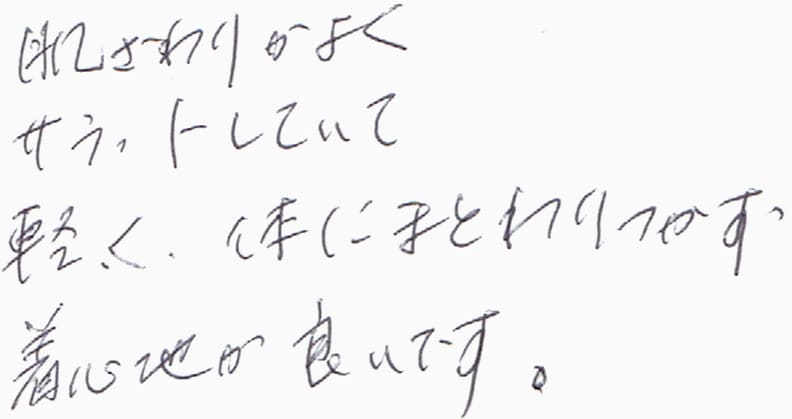 肌ざわりがよく
サラットしていて
軽く、体にまとわりつかず、
着心地が良いです。